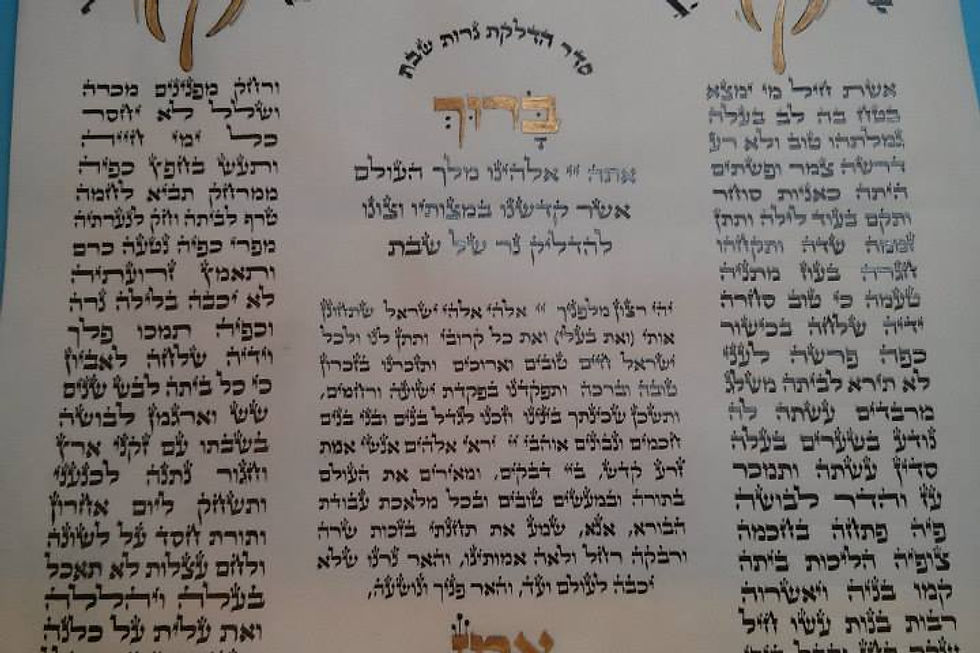 אשת חיל מי ימצא
בטח בה לב בעלה
גמלתהו טוב ולא רע
דרשה צמר ופשתים
היתה כאניות סוחר
ותקם בעוד לילה ותתן
זממה שדה ותקחהו
חגרה בעוז מתניה
טעמה כי טוב סחרה
ידיה שלחה בכישור
כפה פרשה לעני
לא תירא לביתה משלג
מרבדים עשתה לה
נודע בשערים בעלה
סדין עשתה ותמכר
עז והדר לבושה
פיה פתחה בחכמה
צופיה הליכות ביתה
קמו בניה ויאשרוה
רבות בנות עשו חיל
סדר הדלקת נרות שבת
בָּרוּךְ
אתה יי אלהינו מלך העולם
אשר קדשנו במצותיו וצונו
להדליק נר של שבת
יהי רצון מלפניך יי אלהי אלהי ישראל שתחונן
אותי (ואת בעלי) ואת כל קרובי ותתן לנו ולכל
ישראל חיים טובים וארוכים ותזכרנו בזכרון
טובה וברכה ותפקדנו בפקדת ישועה ורחמים,
ותשכן שכינתך בינינו וזכנו לגדל בנים ובני בנים
חכמים ונבונים אוהבי יי יראי אלהים אנשי אמת
זרע קדש, ביי דבקים, ומאירים את העולם
בתורה ובמעשים טובים ובכל מלאכת עבודת
הבורא, אנא, שמע את תחנתי בזכות שרה
ורבקה רחל ולאה אמותינו, והאר נרנו שלא
יכבה לעולם ועד, והאר פניך ונושעה,
אמן
ורחק מפנינים מכרה
ושלל לא יחסר
כל ימי חייה
ותעש בחפץ כפיה
ממרחק תביא לחמה
טרף לביתה וחק לנערתיה
מפרי כפיה נטעה כרם
ותאמץ זרועתיה
לא יכבה בלילה נרה
וכפיה תמכו פלך
וידיה שלחה לאביון
כי כל ביתה לבש שנים
שש וארגמן לבושה
בשבתו עם זקני ארץ
וחגור נתנה לכנעני
ותשחק ליום אחרון
ותורת חסד על לשונה
ולחם עצלות לא תאכל
בעלה ויהללה
ואת עלית על כלנה